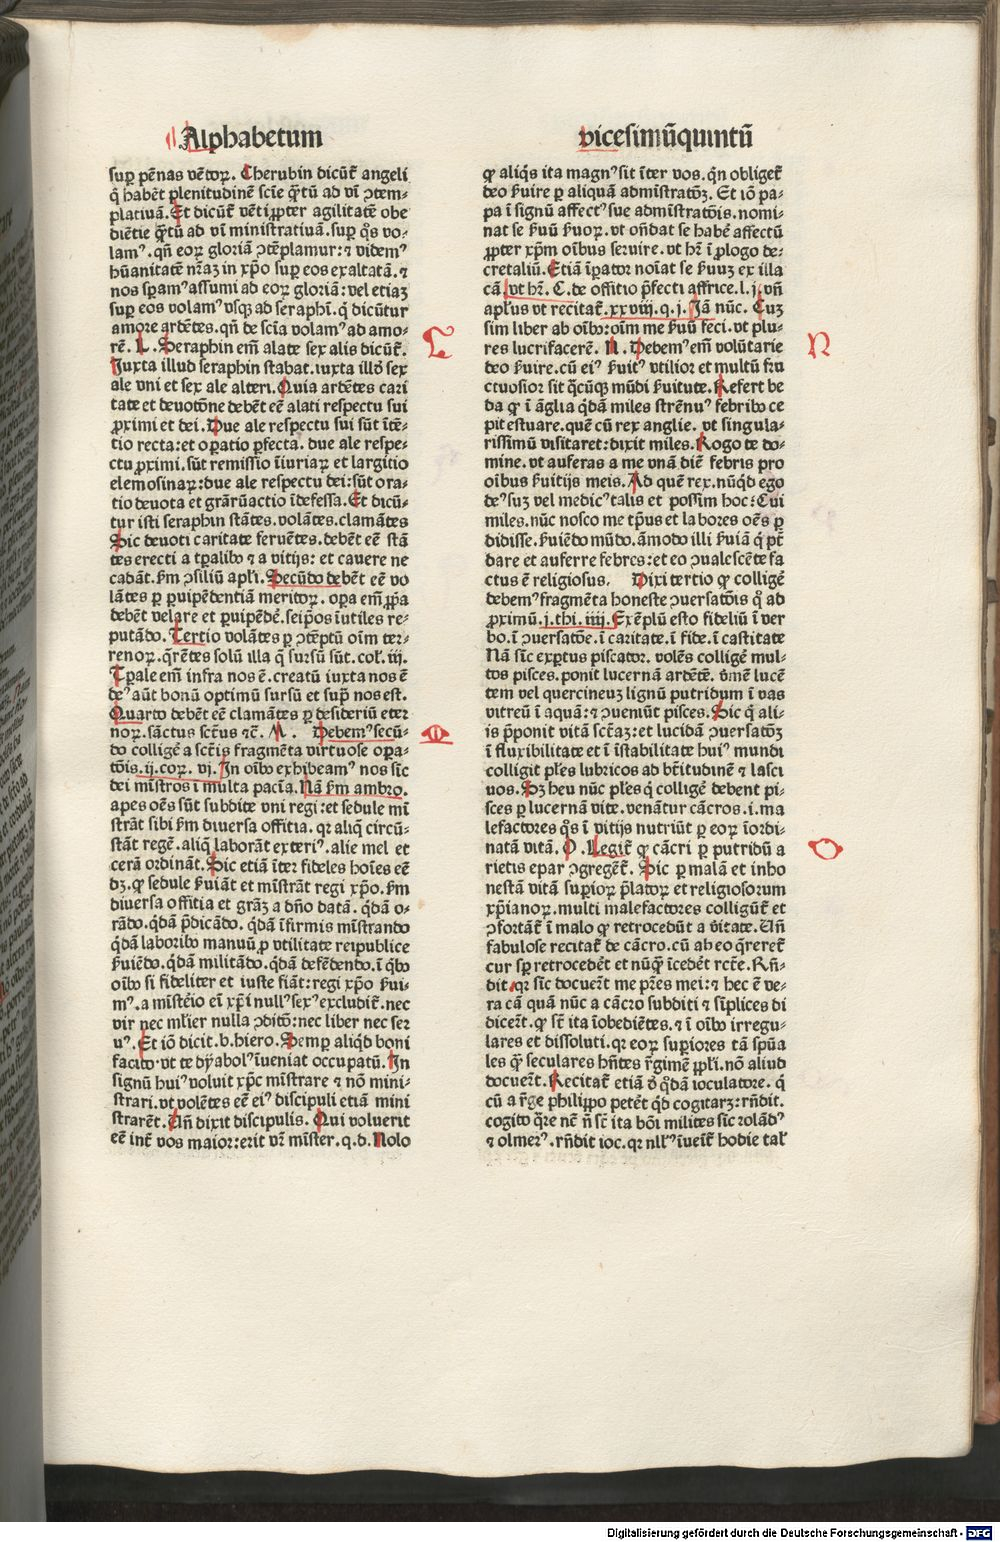 Alphabetum
vicesimūquintū
suꝑ pēnas vētoꝝ. Cherubin dicūt̄ angeli
q̄ habēt plenitudinē scīe q̄ꝫtū ad vī ꝯtem-
platiuā. Et dicūt̄ vēti ꝓpter agilitatē obe
diētie q̄ꝫtū ad vī ministratiuā. suꝑ q̊s vo-
lamꝰ. qn̄ eoꝝ gloriā ꝯtēplamur: ⁊ videmꝰ
hūanitatē nr̄aꝫ in xp̄o suꝑ eos exaltatā. ⁊
nos sꝑamꝰ assumi ad eoꝝ gloriā: vel etiaꝫ
suꝑ eos volamꝰ vsqꝫ ad seraphī. q̇ dicūtur
amore ardētes. qn̄ de scīa volamꝰ ad amo-
rē. L. Seraphin em̄ alate sex alis dicūt̄.
Iuxta illud seraphin stabat. iuxta illō sex
ale vni et sex ale alteri. Quia ardētes cari
tate et deuotōne debēt eē alati respectu sui
ꝓximi et dei. Due ale respectu sui sūt ītē-
tio recta: et oꝑatio ꝑfecta. due ale respe-
ctu ꝓximi. sūt remissio īiuriaꝝ et largitio
elemosinaꝝ: due ale respectu dei: sūt ora-
tio deuota et grāꝝuactio īdefessa. Et dicū-
tur isti seraphin stātes. volātes. clamātes
Sic deuoti caritate feruētes. debēt eē stā
tes erecti a tꝑalibꝰ ⁊ a vitijs: et cauere ne
cadāt. ẜm ꝯsiliū apl̄i. Secūdo debēt eē vo
lātes ꝑ ꝑuipēdentiā meritoꝝ. oꝑa em̄ ꝓp̄a
debēt velare et ꝑuipēdē. seip̄os īutiles re-
putādo. Tertio volātes ꝑ ꝯtēptū oīm ter-
renoꝝ. q̄rētes solū illa q̄ sursū sūt. col̄. iij.
Tꝑale em̄ infra nos ē. creatū iuxta nos ē
deꝰ aūt bonū optimū sursū et sup̄ nos est.
Quarto debēt eē clamātes ꝑ desideriū eter
noꝝ. sāctus sctūs ⁊c̄. M. Debemꝰ secū-
do colligē a sctīs fragmēta virtuose oꝑa-
tōis. ij. coꝝ. vj. In oībꝰ exhibeamꝰ nos sīc
dei mīstros ī multa pacīa. Nā ẜm ambro.
apes oēs sūt subdite vni regi: et sedule mī
strāt sibi ẜm diuersa officia. qꝛ aliq̄ circū-
stāt regē. aliq̄ laborāt exteriꝰ. alie mel et
cerā ordināt. Sic etiā īter fideles hoīes eē
dꝫ. ꝙ sedule ẜuiāt et mīstrāt regi xp̄o. ẜm
diuersa offitia et grāꝫ a dn̄o datā. q̇dā o-
rādo. q̇dā p̄dicādo. q̇dā īfirmis mīstrando
q̇dā laboribꝰ manuū ꝓ vtilitate reipublice
ẜuiēdo. q̇dā militādo. q̇dā defēdendo. ī q̇bꝰ
oībꝰ si fideliter et iuste fiāt: regi xp̄o ẜui-
mꝰ. a mīstēio ei xp̄i nullꝰ sexꝰ excludit̄. nec
vir nec ml̓ier nulla ꝯditō: nec liber nec ser
uꝰ. Et iō dicit. b. hiero. Semꝑ aliq̇d boni
facito. vt te dyabolꝰ īueniat occupatū. In
signū huiꝰ voluit xp̄c mīstrare ⁊ nō mini-
strari. vt volētes eē eiꝰ discipuli etiā mini
strarēt. Un̄ dixit discipulis. Qui voluerit
eē int̄ vos maior: erit vr̄ mīster. q. d. Nolo
L
M
ꝙ aliq̇s ita magnꝰ sit īter vos. qn̄ obliget̄
deo ẜuire ꝑ aliquā admīstratōꝫ. Et iō pa-
pa ī signū affectꝰ sue admīstratōis. nomi-
nat se ẜuū ẜuoꝝ. vt on̄dat se habē affectū
ꝓpter xp̄m oībus seruire. vt hr̄ ī ꝓlogo de-
cretaliū. Etiā īꝑator noīat se ẜuuꝫ ex illa
cā. vt hr̄. C. de offitio p̄fecti affrice. l. j. vn̄
apl̄us vt recitat̄. xxviij. q. j. Iā nūc. Cuꝫ
sim liber ab oībꝰ: oīm me ẜuū feci. vt plu-
res lucrifacerē. N. Debemꝰ em̄ volūtarie
deo ẜuire. cū eiꝰ ẜuitꝰ vtilior et multū fru
ctuosior sit q̇cūqꝫ mūdi ẜuitute. Refert be
da ꝙ ī āglia q̇dā miles strēnuꝰ febribꝰ ce
pit estuare. quē cū rex anglie. vt singula-
rissimū visitaret: dixit miles. Rogo te do-
mine. vt auferas a me vnā diē febris pro
oībus ẜuitijs meis. Ad quē rex. nūq̇d ego
deꝰ suꝫ vel medicꝰ talis et possim hoc: Cui
miles. nūc nosco me tp̄us et labores oēs ꝑ
didisse. ẜuiēdo mūdo. āmodo illi ẜuiā q̇ pt̄
dare et auferre febres: et eo ꝯualescēte fa
ctus ē religiosus. Dixi tertio ꝙ colligē
debemꝰ fragmēta honeste ꝯuersatōis q̊ ad
ꝓximū. j. thi. iiij. Exēplū esto fideliū ī ver
bo. ī ꝯuersatōe. ī caritate. ī fide. ī castitate
Nā sīc exꝑtus piscator. volēs colligē mul-
tos pisces. ponit lucernā ardētē. vmē lucē
tem vel quercineuꝫ lignū putridum ī vas
vitreū ī aquā: ⁊ ꝯueniūt pisces. Sic q̇ ali-
is p̄ponit vitā sctāꝫ: et lucidā ꝯuersatōꝫ
ī fluxibilitate et ī istabilitate huiꝰ mundi
colligit pl̄es lubricos ad bt̄itudinē ⁊ lasci
uos. Sꝫ heu nūc pl̄es q̇ colligē debent pi-
sces ꝑ lucernā vite. venātur cācros. i. ma
lefactores q̊s ī vitijs nutriūt ꝑ eoꝝ īordi-
natā vitā. O. Legit̄ ꝙ cācri ꝑ putridū a
rietis epar ꝯgregēt̄. Sic ꝑ malā et inho
nestā vitā suꝑioꝝ p̄latoꝝ et religiosorum
xp̄ianoꝝ. multi malefactores colligūt̄ et
ꝯfortāt̄ ī malo ꝙ retrocedūt a v̄itate. Un̄
fabulose recitat̄ de cācro. cū ab eo q̄reret̄
cur sꝑ retrocedēt et nūq̄ꝫ īcedēt rctē. Rn̄-
dit. qꝛ sīc docuerūt me pr̄es mei: ⁊ hec ē ve-
ra cā quā nūc a cācro subditi ⁊ sīplices di
dicerūt. ꝙ sūt ita īobediētes. ⁊ ī oībꝰ irregu-
lares et dissoluti. qꝛ eoꝝ suꝑiores tā sp̄ua
les q̄ꝫ seculares hn̄tes r̄gimē ꝓpl̄i. nō aliud
docuerūt. Recitat̄ etiā d̄ q̇dā ioculatore. q̇
cū a r̄ge philippo petēt q̇d cogitaꝛꝫ: rn̄dit.
cogito q̄re nc̄ n̄ sūt ita bōi milites sīc rolādꝰ
⁊ olmerꝰ. rn̄dit ioc. qꝛ nll̄ꝰ īueīt̄ hodie tal̄
N
O
Digitalisierung gefördert durch die Deutsche Forschungsgemeinschaft - DFG